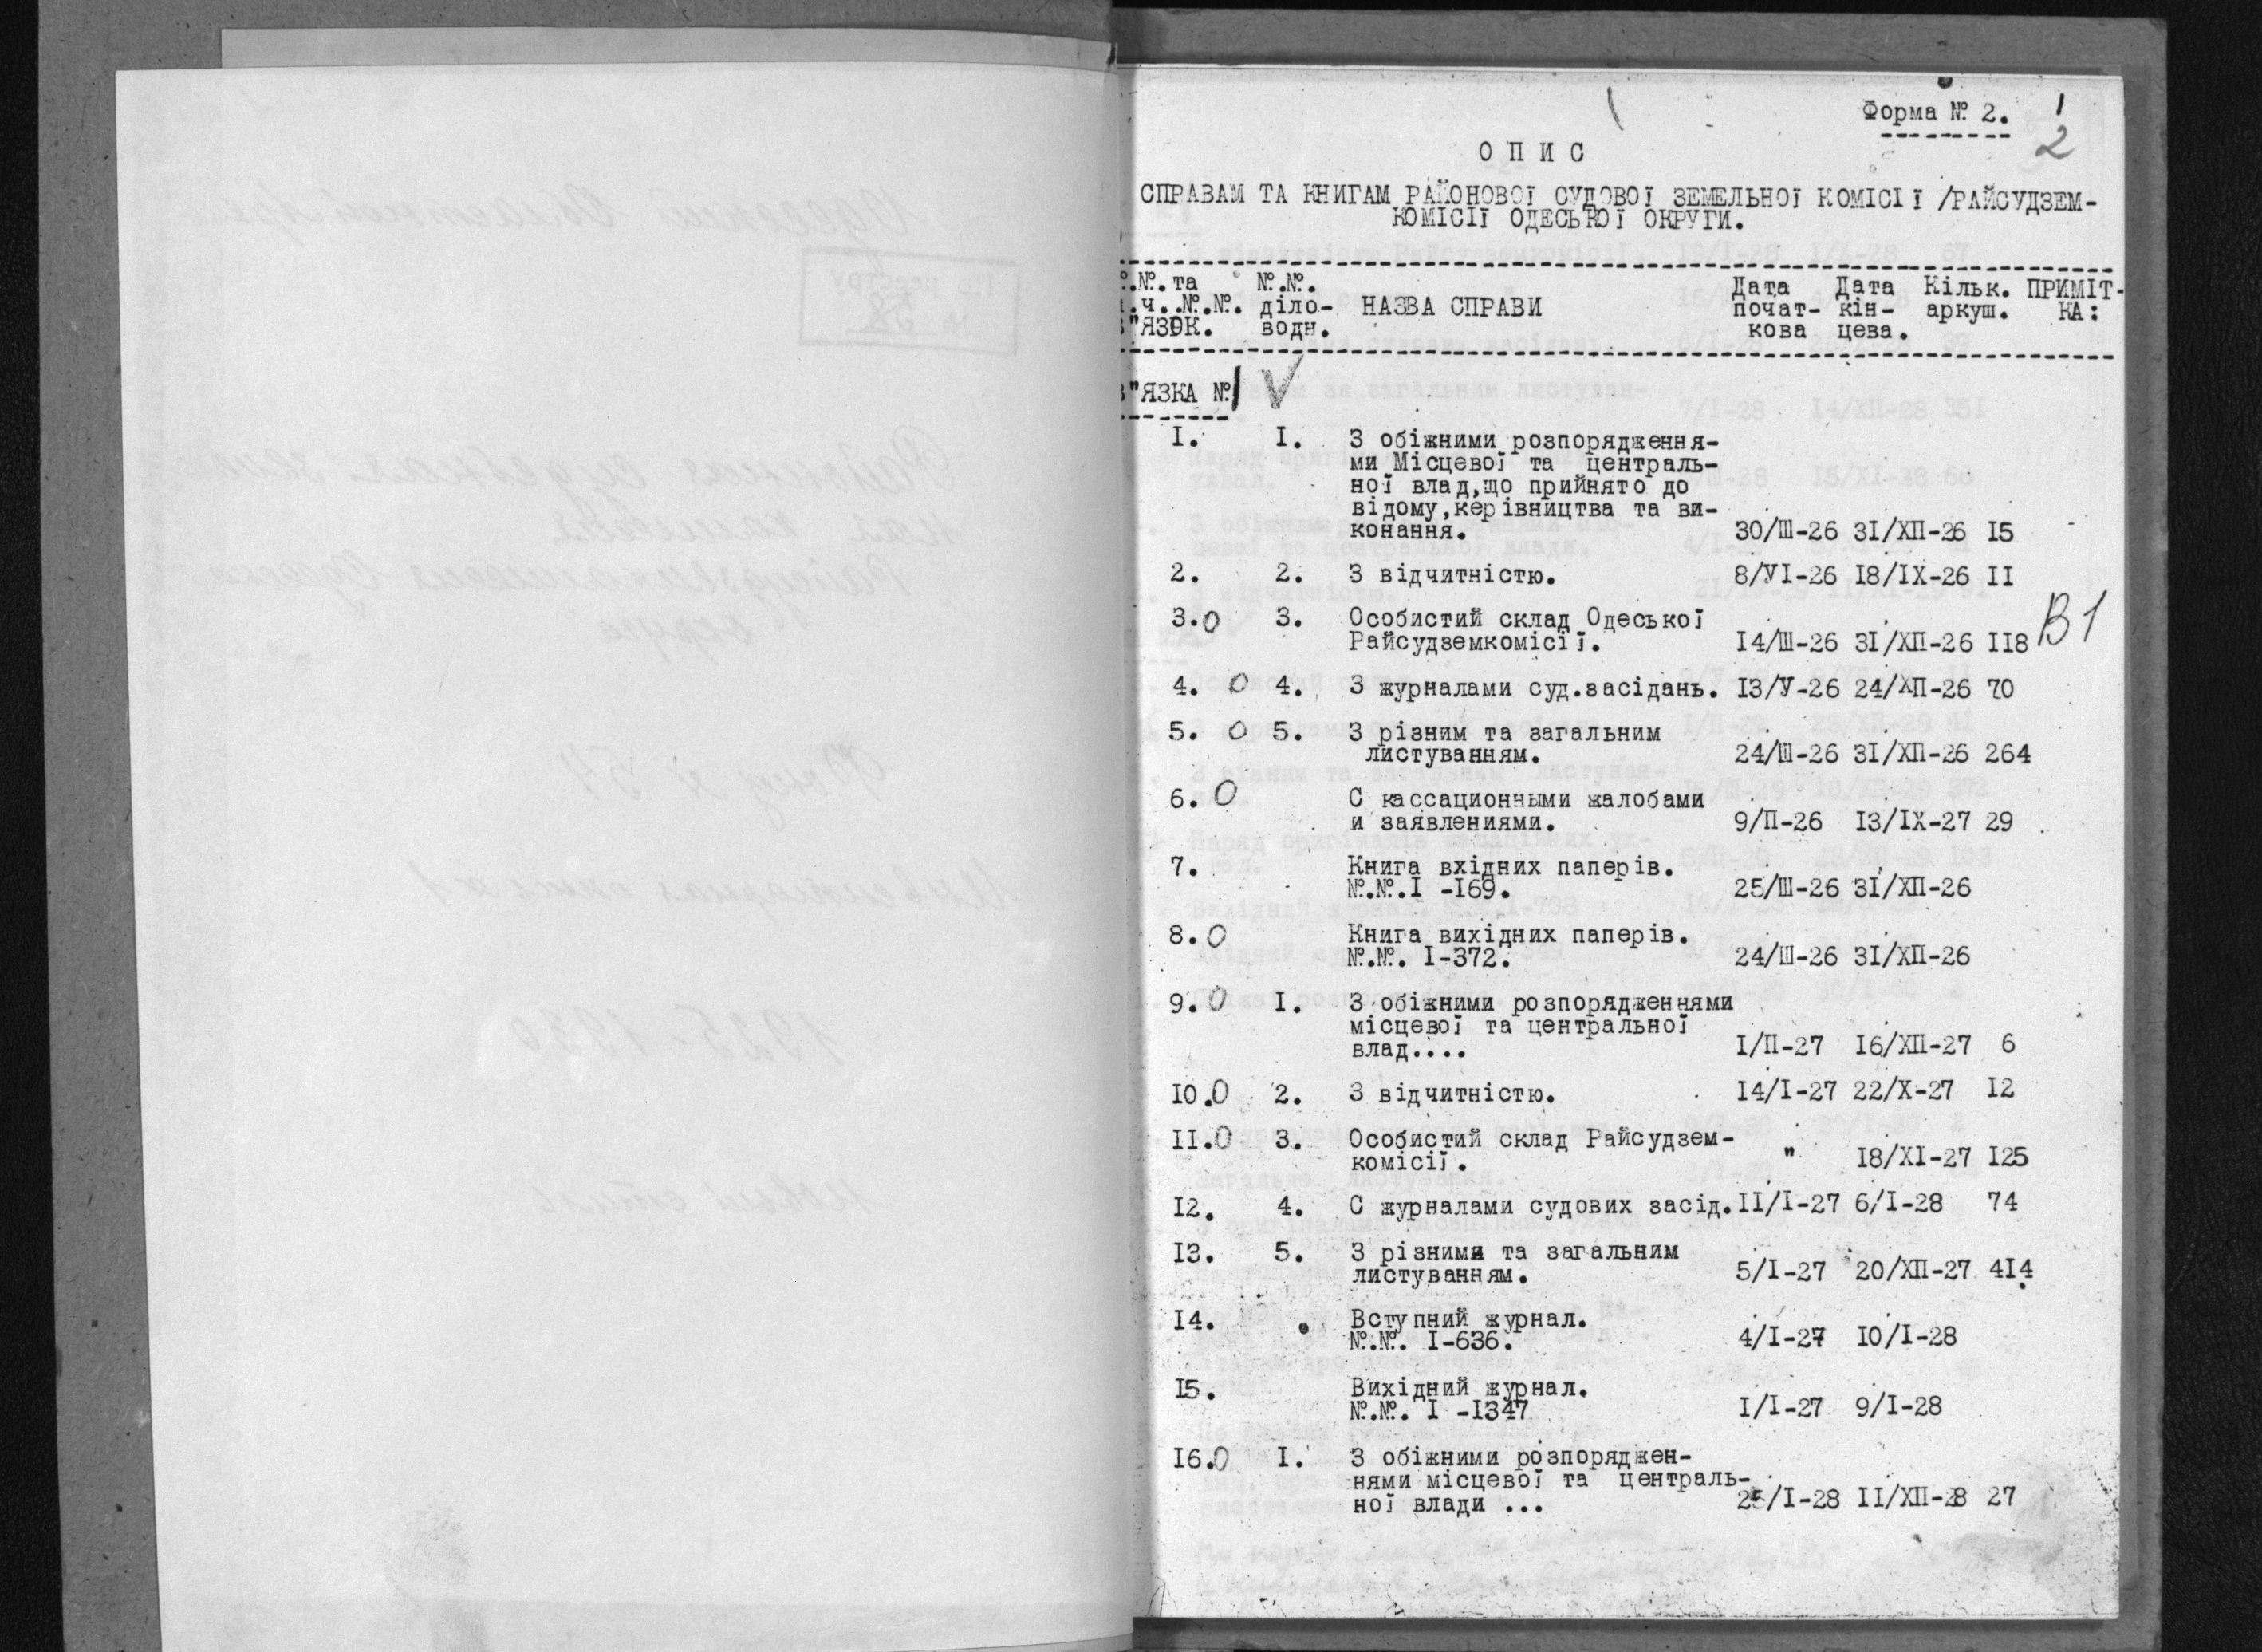 Форма № 2. 1
2
О П И С
СПРАВАМ ТА КНИГАМ РАЙОНОВОЇ СУДОВОЇ ЗЕМЕЛЬНОЇ КОМІСІЇ /РАЙСУДЗЕМ-
КОМІСІЇ ОДЕСЬКОЇ ОКРУГИ.
№.та №.№. Дата Дата Кільк. ПРИМІТ-
ч..№.№. діло- НАЗВА СПРАВИ почат- кін- аркуш. КА:
"ЯЗОК. водн. кова цева.
"ЯЗКА № 1 V
I. I. З обіжними розпорядження-
ми Місцевої та централь-
ної влад,що прийнято до
відому,керівництва та ви-
конання. 30/Ш-26 3I/ХП-26 I5
2. 2. З відчитністю. 8/УI-26 I8/IХ-26 II
3.0 3. Особистий склад Одеської
Райсудземкомісії. I4/Ш-26 3I/ХП-26 II8 В1
4. 0 4. З журналами суд.засідань. I3/У-26 24/ХП-26 70
5. 0 5. З різним та загальним
листуванням. 24/Ш-26 3I/ХП-26 264
6. 0 С кассационными жалобами
и заявлениями. 9/П-26 I3/IХ-27 29
7. Книга вхідних паперів.
№.№.I -I69. 25/Ш-26 3I/ХП-26
8.0 Книга вихідних паперів.
№.№. I-372. 24/Ш-26 3I/ХП-26
9.0 I. З обіжними розпорядженнями
місцевої та центральної
влад.... I/П-27 I6/ХП-27 6
I0.0 2. З відчитністю. I4/I-27 22/Х-27 I2
II.0 3. Особистий склад Райсудзем-
комісії. " I8/ХI-27 I25
I2. 4. С журналами судових засід.II/I-27 6/I-28 74
I3. 5. З різними та загальним
листуванням. 5/I-27 20/ХП-27 4I4
I4. Вступний журнал.
№.№. I-636. 4/I-27 I0/I-28
I5. Вихідний журнал.
№.№. I -I347 I/I-27 9/I-28
I6.0 I. З обіжними розпоряджен-
нями місцевої та централь-
ної влади ... /I-28 II/ХП-28 27